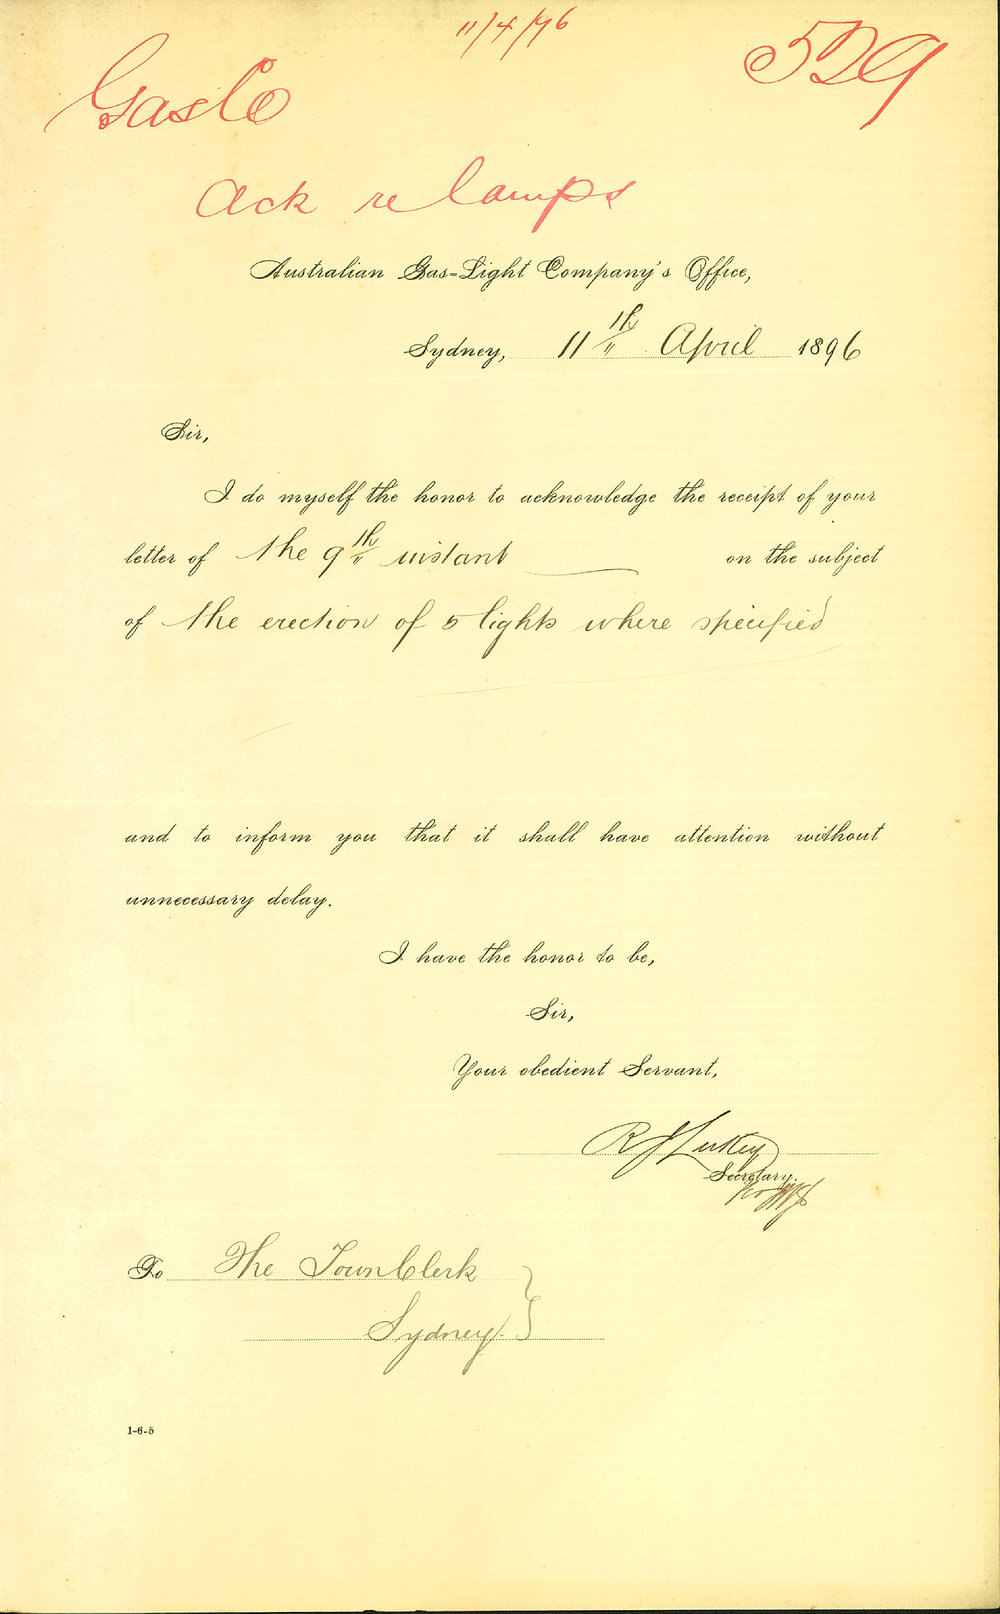 11/4/96
GasCo
529
Ack re lamps
Australian Gas-Light Company's Office,
Sydney, 11th April 1896
Sir,
I do myself the honor to acknowledge the receipt of your
letter of the 9th instant on the subject
of the erection of 5 lights where specified
and to inform you that it shall have attention without
unnecessary delay.
I have the honor to be,
Sir,
Your obedient Servant,
R J Lukey
Secretary.
To The Town Clerk
Sydney
1-6-5